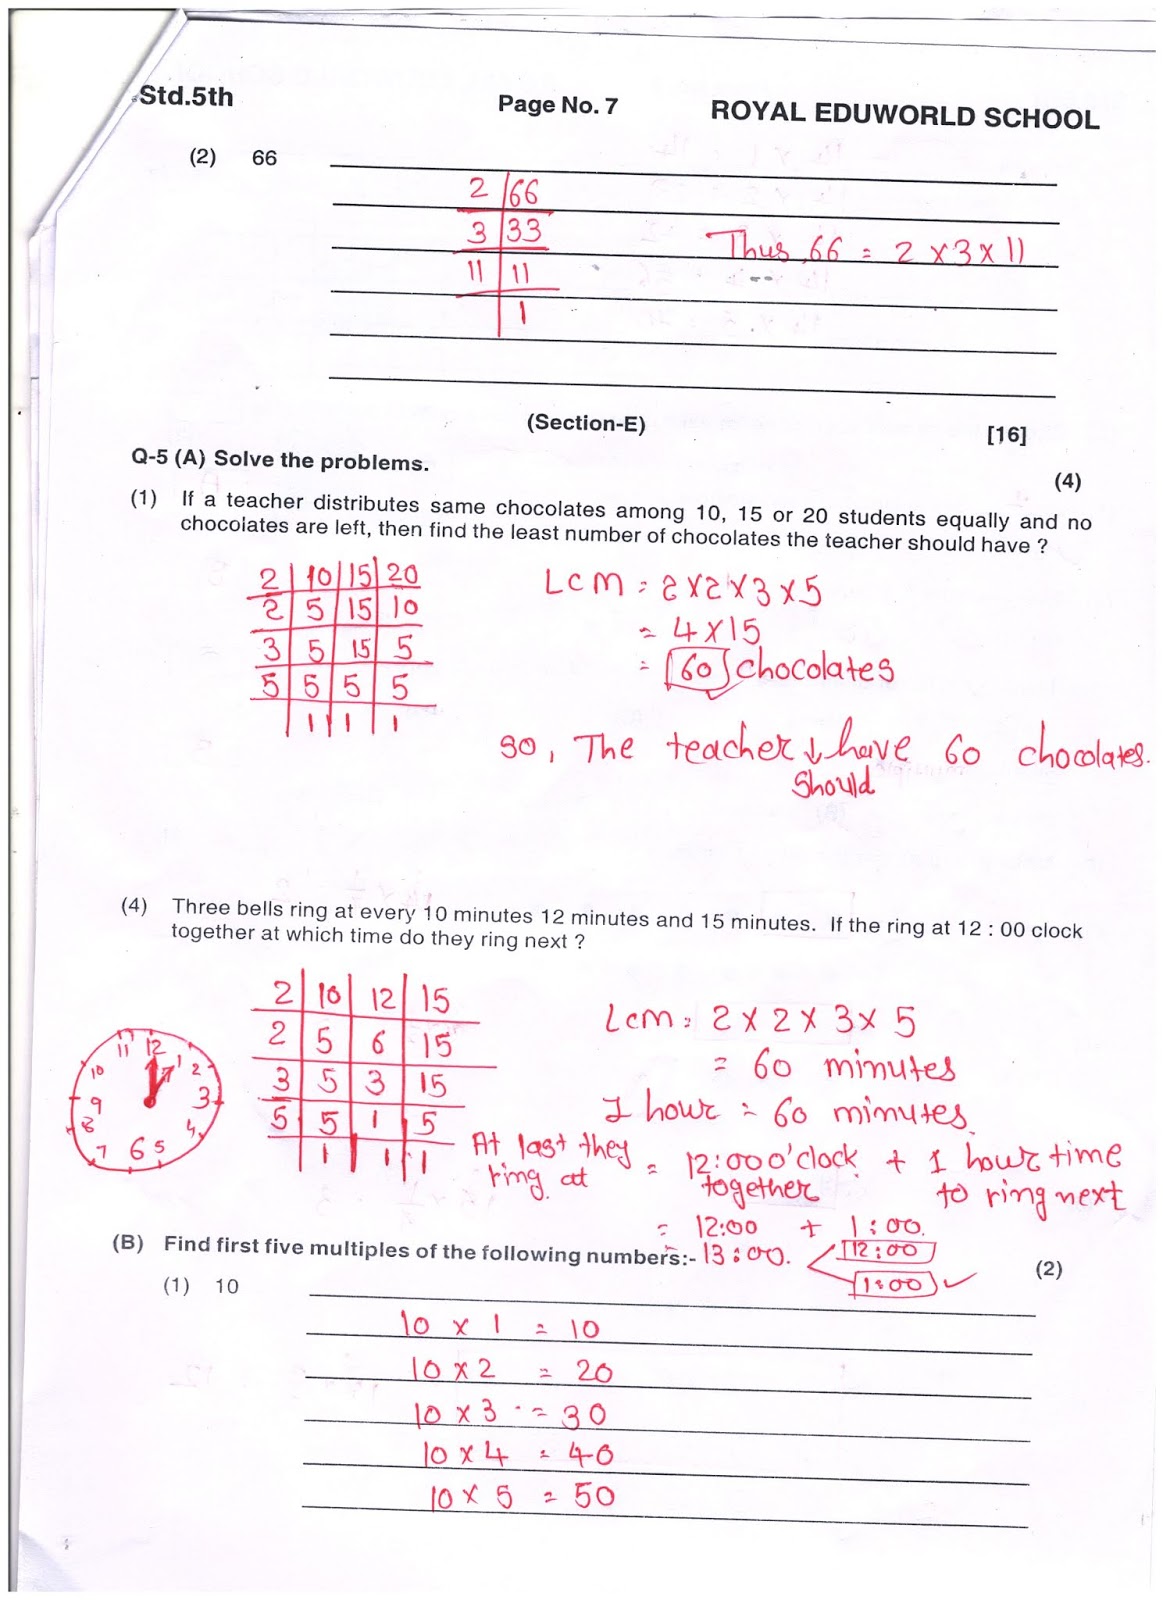 Std.5th Page No. 7 ROYAL EDUWORLD SCHOOL
(2) 66
2 66
3 33
11 11
1
Thus, 66 = 2 x 3 x 11
(Section-E)
[16]
Q-5 (A) Solve the problems.
(4)
(1) If a teacher distributes same chocolates among 10, 15 or 20 students equally and no
chocolates are left, then find the least number of chocolates the teacher should have ?
2 10 15 20
2 5 15 10
3 5 15 5
5 5 5 5
1 1 1
LCM = 2 x 2 x 3 x 5
= 4 x 15
= 60 chocolates
so, The teacher ↓ have 60 chocolates.
should
(4) Three bells ring at every 10 minutes 12 minutes and 15 minutes. If the ring at 12 : 00 clock
together at which time do they ring next ?
2 10 12 15
2 5 6 15
3 5 3 15
5 5 1 5
1 1 1
12 1 2 3 4 5 6 7 8 9 10 11
Lcm = 2 x 2 x 3 x 5
= 60 minutes
1 hour = 60 minutes.
At last they ring at = 12:00 o'clock together + 1 hour time to ring next
= 12:00 + 1:00.
= 13:00. 12:00
1:00
(B) Find first five multiples of the following numbers:-
(2)
(1) 10
10 x 1 = 10
10 x 2 = 20
10 x 3 = 30
10 x 4 = 40
10 x 5 = 50